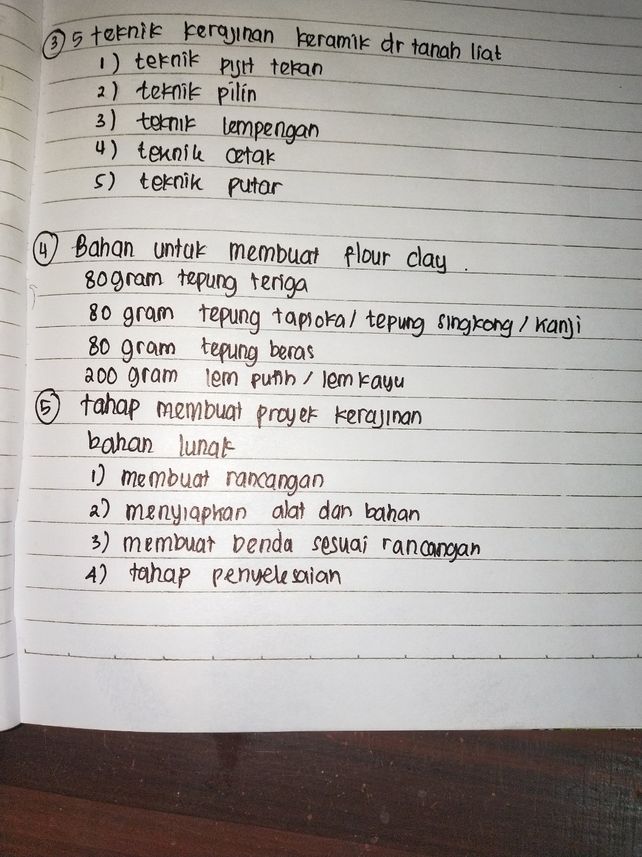 ③ 5 teknik kerajinan keramik dr tanah liat
1) teknik pijit tekan
2) teknik pilin
3) teknik lempengan
4) teknik cetak
5) teknik putar
④ Bahan untuk membuat flour clay.
80 gram tepung teriga
80 gram tepung tapioka / tepung singkong / kanji
80 gram tepung beras
200 gram lem putih / lem kayu
⑤ tahap membuat proyek kerajinan
bahan lunak
1) membuat rancangan
2) menyiapkan alat dan bahan
3) membuat benda sesuai rancangan
4) tahap penyelesaian